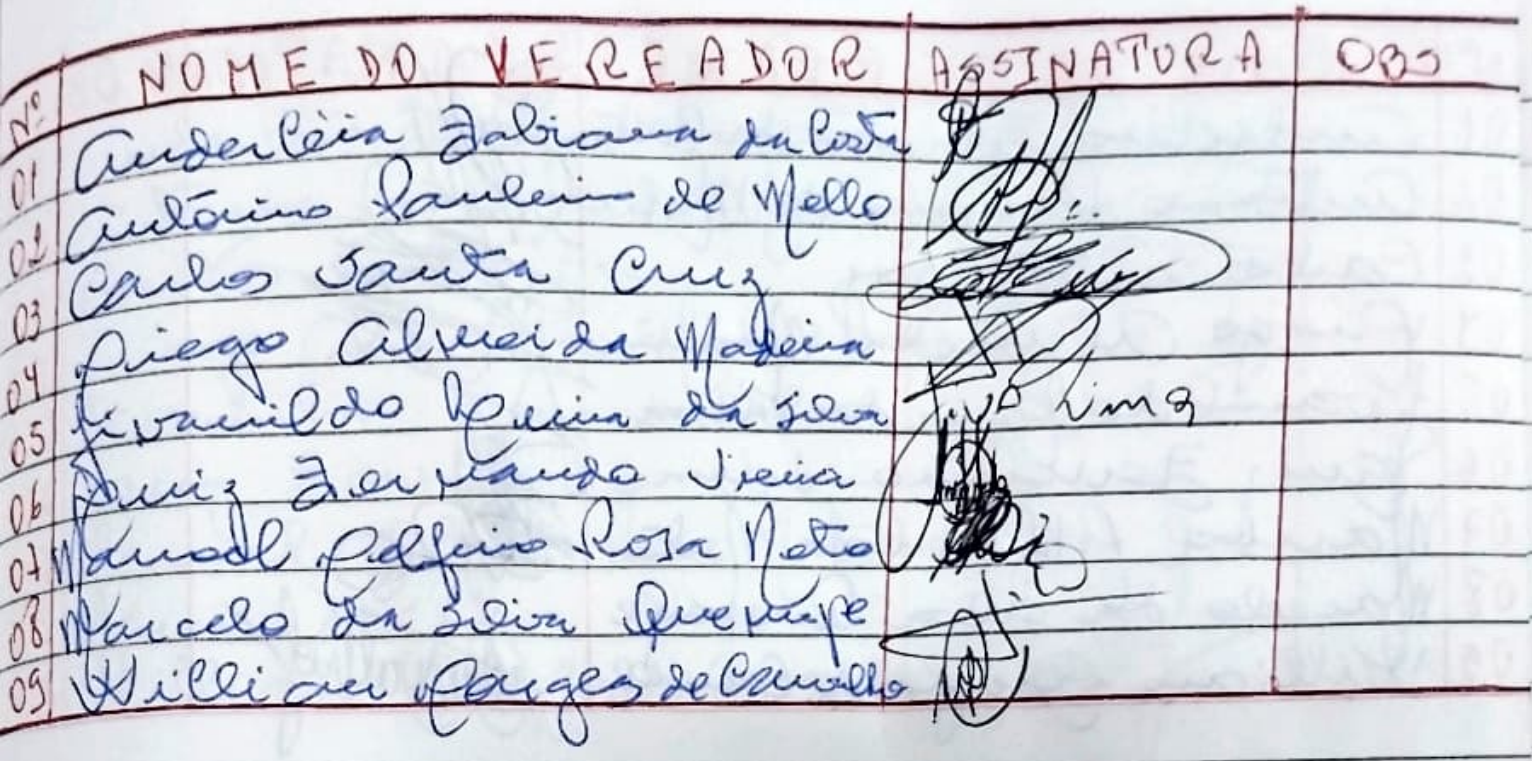 Nº NOME DO VEREADOR ASSINATURA OBS
01 Anderléia Fabiana da Costa
02 Antônino Paulino de Mello
03 Carlos Santa Cruz
04 Diego Almeida Madeira
05 Jivanildo da Silva Lima
06 Luiz Fernando Vieira
07 Manoel Delfino Rosa Neto
08 Marcelo da Silva
09 Willian Borges de Carvalho